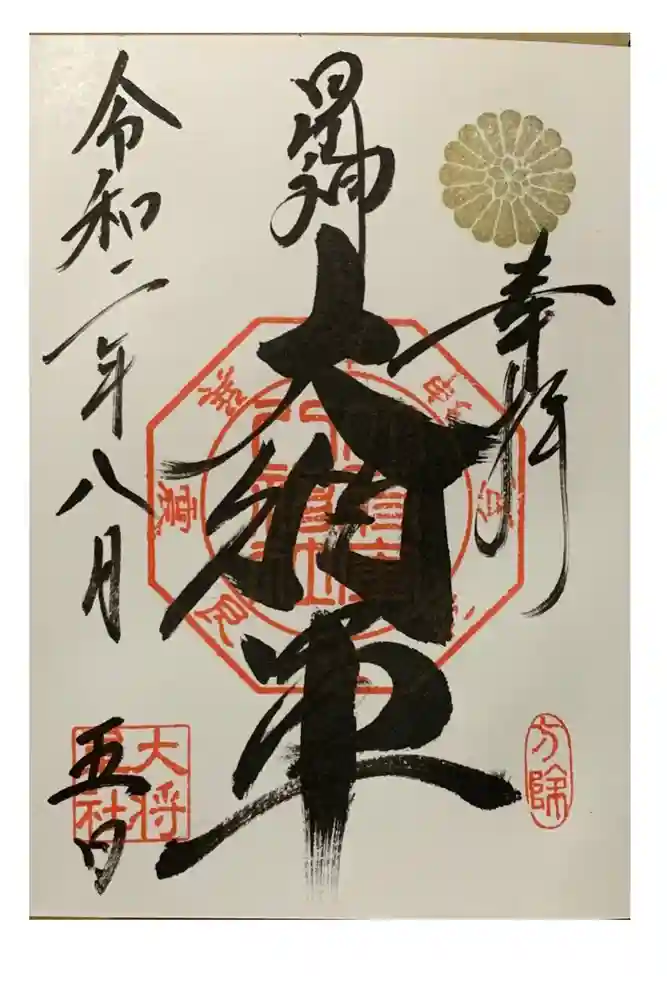 奉拝
方除
星神
大将軍
令和二年八月五日
大将
軍社